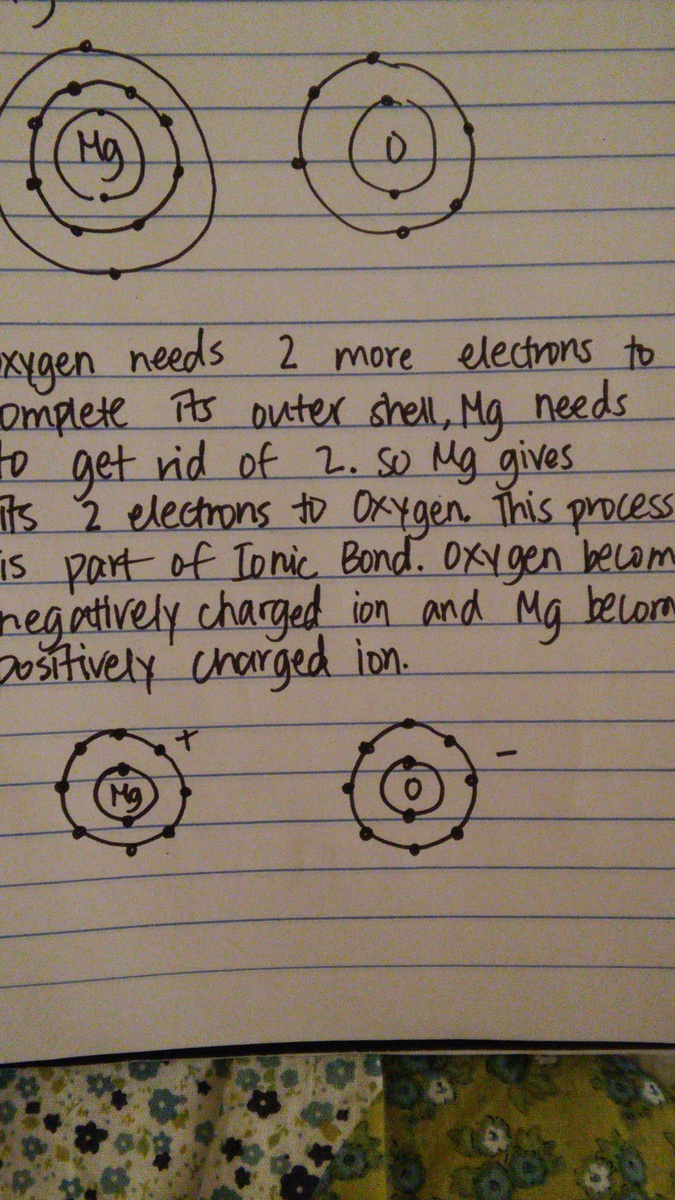 Mg O
xygen needs 2 more electrons to
omplete its outer shell, Mg needs
to get rid of 2. so Mg gives
its 2 electrons to Oxygen. This process
is part of Ionic Bond. Oxygen becom
negatively charged ion and Mg becom
positively charged ion.
Mg + O -